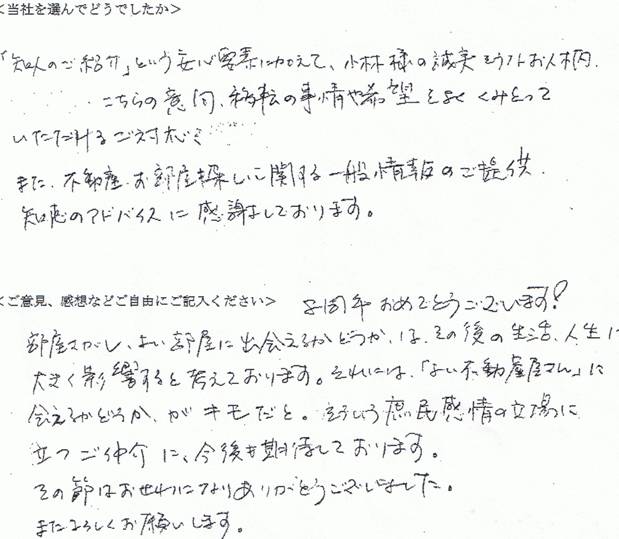 ＜当社を選んでどうでしたか＞
「知人のご紹介」という安心要素に加えて、小林様の誠実そうなお人柄、
こちらの意向、移転の事情や希望をよくくみとって
いただけるご対応と
また、不動産、お部屋探しに関する一般情報のご提供、
知恵のアドバイスに感謝しております。
＜ご意見、感想などご自由にご記入ください＞ 8周年おめでとうございます!
部屋さがし、よい部屋に出会えるかどうか、は、その後の生活、人生に
大きく影響すると考えております。それには、「よい不動産屋さん」に
会えるかどうか、がキモだと。そういう庶民感情の立場に
立つご仲介に、今後も期待しております。
その節はお世わになりありがとうございました。
またよろしくお願いします。